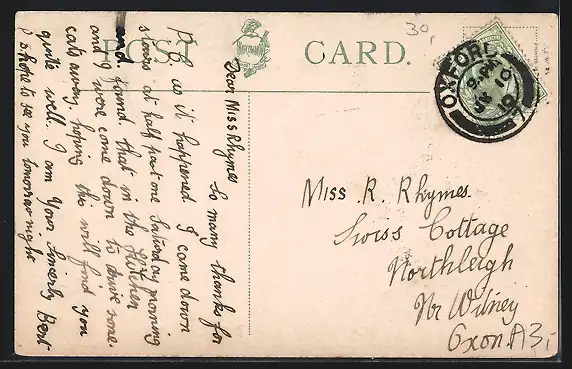 POST CARD.
30,
OXFORD
SP 10
10
Dear Miss Rhymes
So many thanks for
P.C. as it happened I come down
stairs at half past one Saturday morning
and found that in the Kitchen
and were come down to drive some
cats away, hoping this will find you
quite well. I am Your Sincerly Bert
P S hope to see you tomorrow night
Miss R. Rhymes.
Swiss Cottage
Northleigh
Nr Witney
Oxon. A3,-